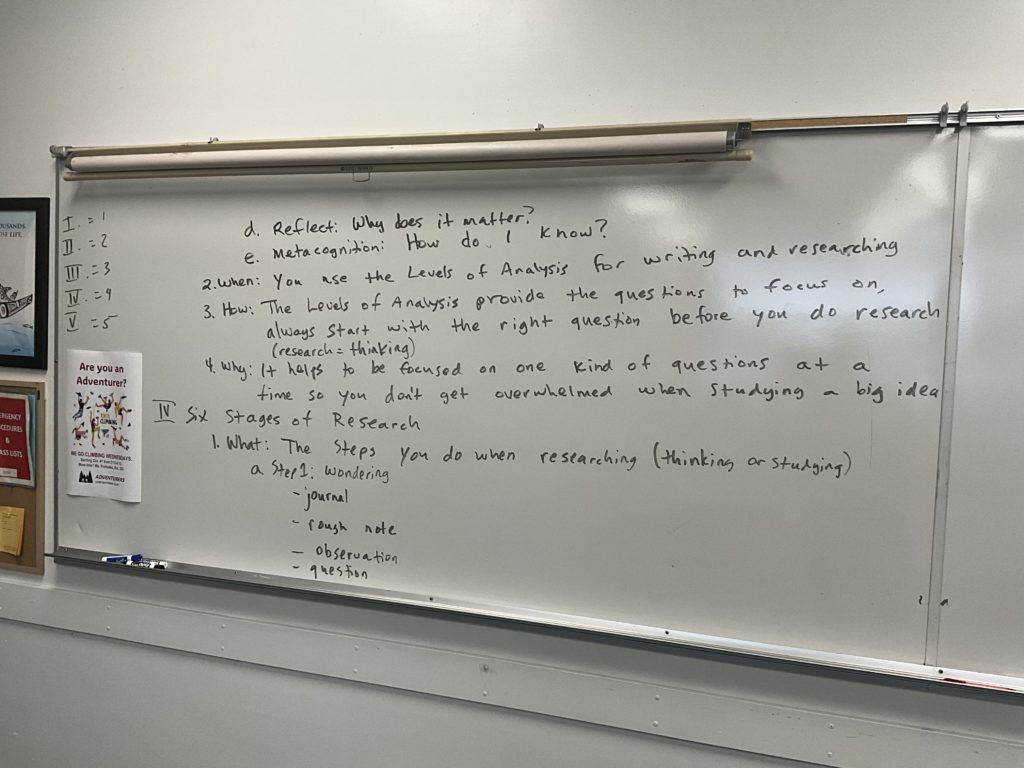 OUSANDS.
OSE LIFE.
I. = 1
II. = 2
III. = 3
IV. = 4
V = 5
d. Reflect: Why does it matter?
e. Metacognition: How do I know?
2. When: You use the Levels of Analysis for writing and researching
3. How: The Levels of Analysis provide the questions to focus on,
always start with the right question before you do research
(research = thinking)
4. Why: It helps to be focused on one kind of questions at a
time so you don't get overwhelmed when studying a big idea
IV Six Stages of Research
1. What: The steps you do when researching (thinking or studying)
a. Step 1: wondering
- journal
- rough note
- observation
- question
Are you an
Adventurer?
CLIMBING
WE GO CLIMBING WEDNESDAYS.
ADVENTURERS
ERGENCY
OCEDURES
&
ASS LISTS